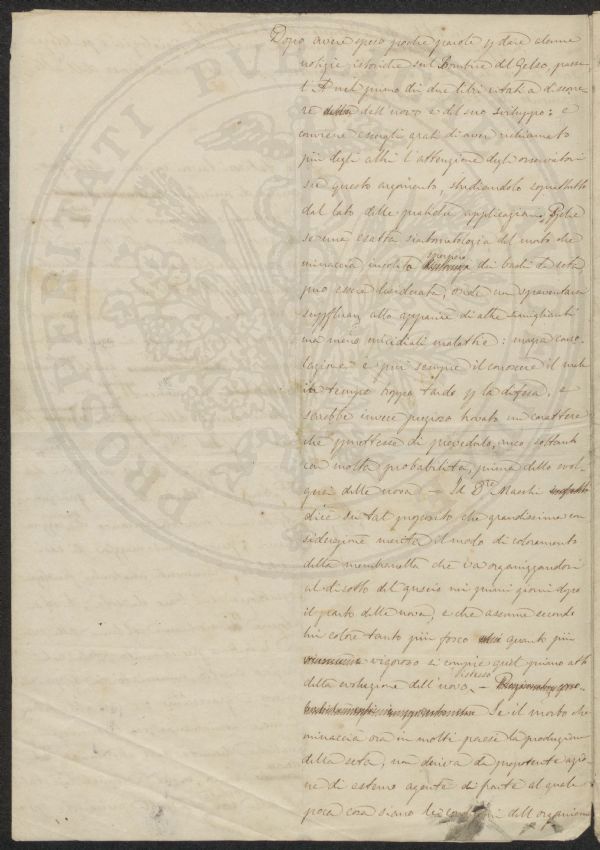 Dopo avere speso poche parole p dare alcune
notizie istoriche sul Bombice del Gelso, passa
l'A nel primo dei due libri citati a discorre
re della dell'uovo e del suo sviluppo: e
conviene essergli grati di aver richiamato
più degli altri l'attenzione degli osservatori
su questo argomento, studiandolo soprattutto
dal lato delle pratiche applicazioni. Poiche
se una esatta sintomatologia del morbo che
minaccia
può essere desiderata, onde non spaventarsi
alla apparire di altre simiglianti
ma meno micidiali malattie: magra conso
lazione è pur sempre il conoscere il male
in tempo troppo tardo p la difesa, e
sarebbe invece prezioso trovato un carattere
che pmettesse di prevederlo, anco soltanto
con molta probabilità, prima dello svol
gersi delle uova — Il Dre Maschi
dice su tal proposito che grandissima con
siderazione merita il modo di coloramento
della membranella che va organizzandosi
al disotto del guscio nei primi giorni dopo
il parto delle uova, e che assume secondo
lui colore tanto più fosco quanto più
vigoroso si compie quel primo atto
della evoluzione dell'uovo istesso. —
Se il morbo che
minaccia ora in molti paesi la produzione
della seta, non deriva da prepotente azio
ne di esterno agente di fronte al quale
poca cosa siano le condizioni dell'organismo
PROSPERITATI PUBLICAE